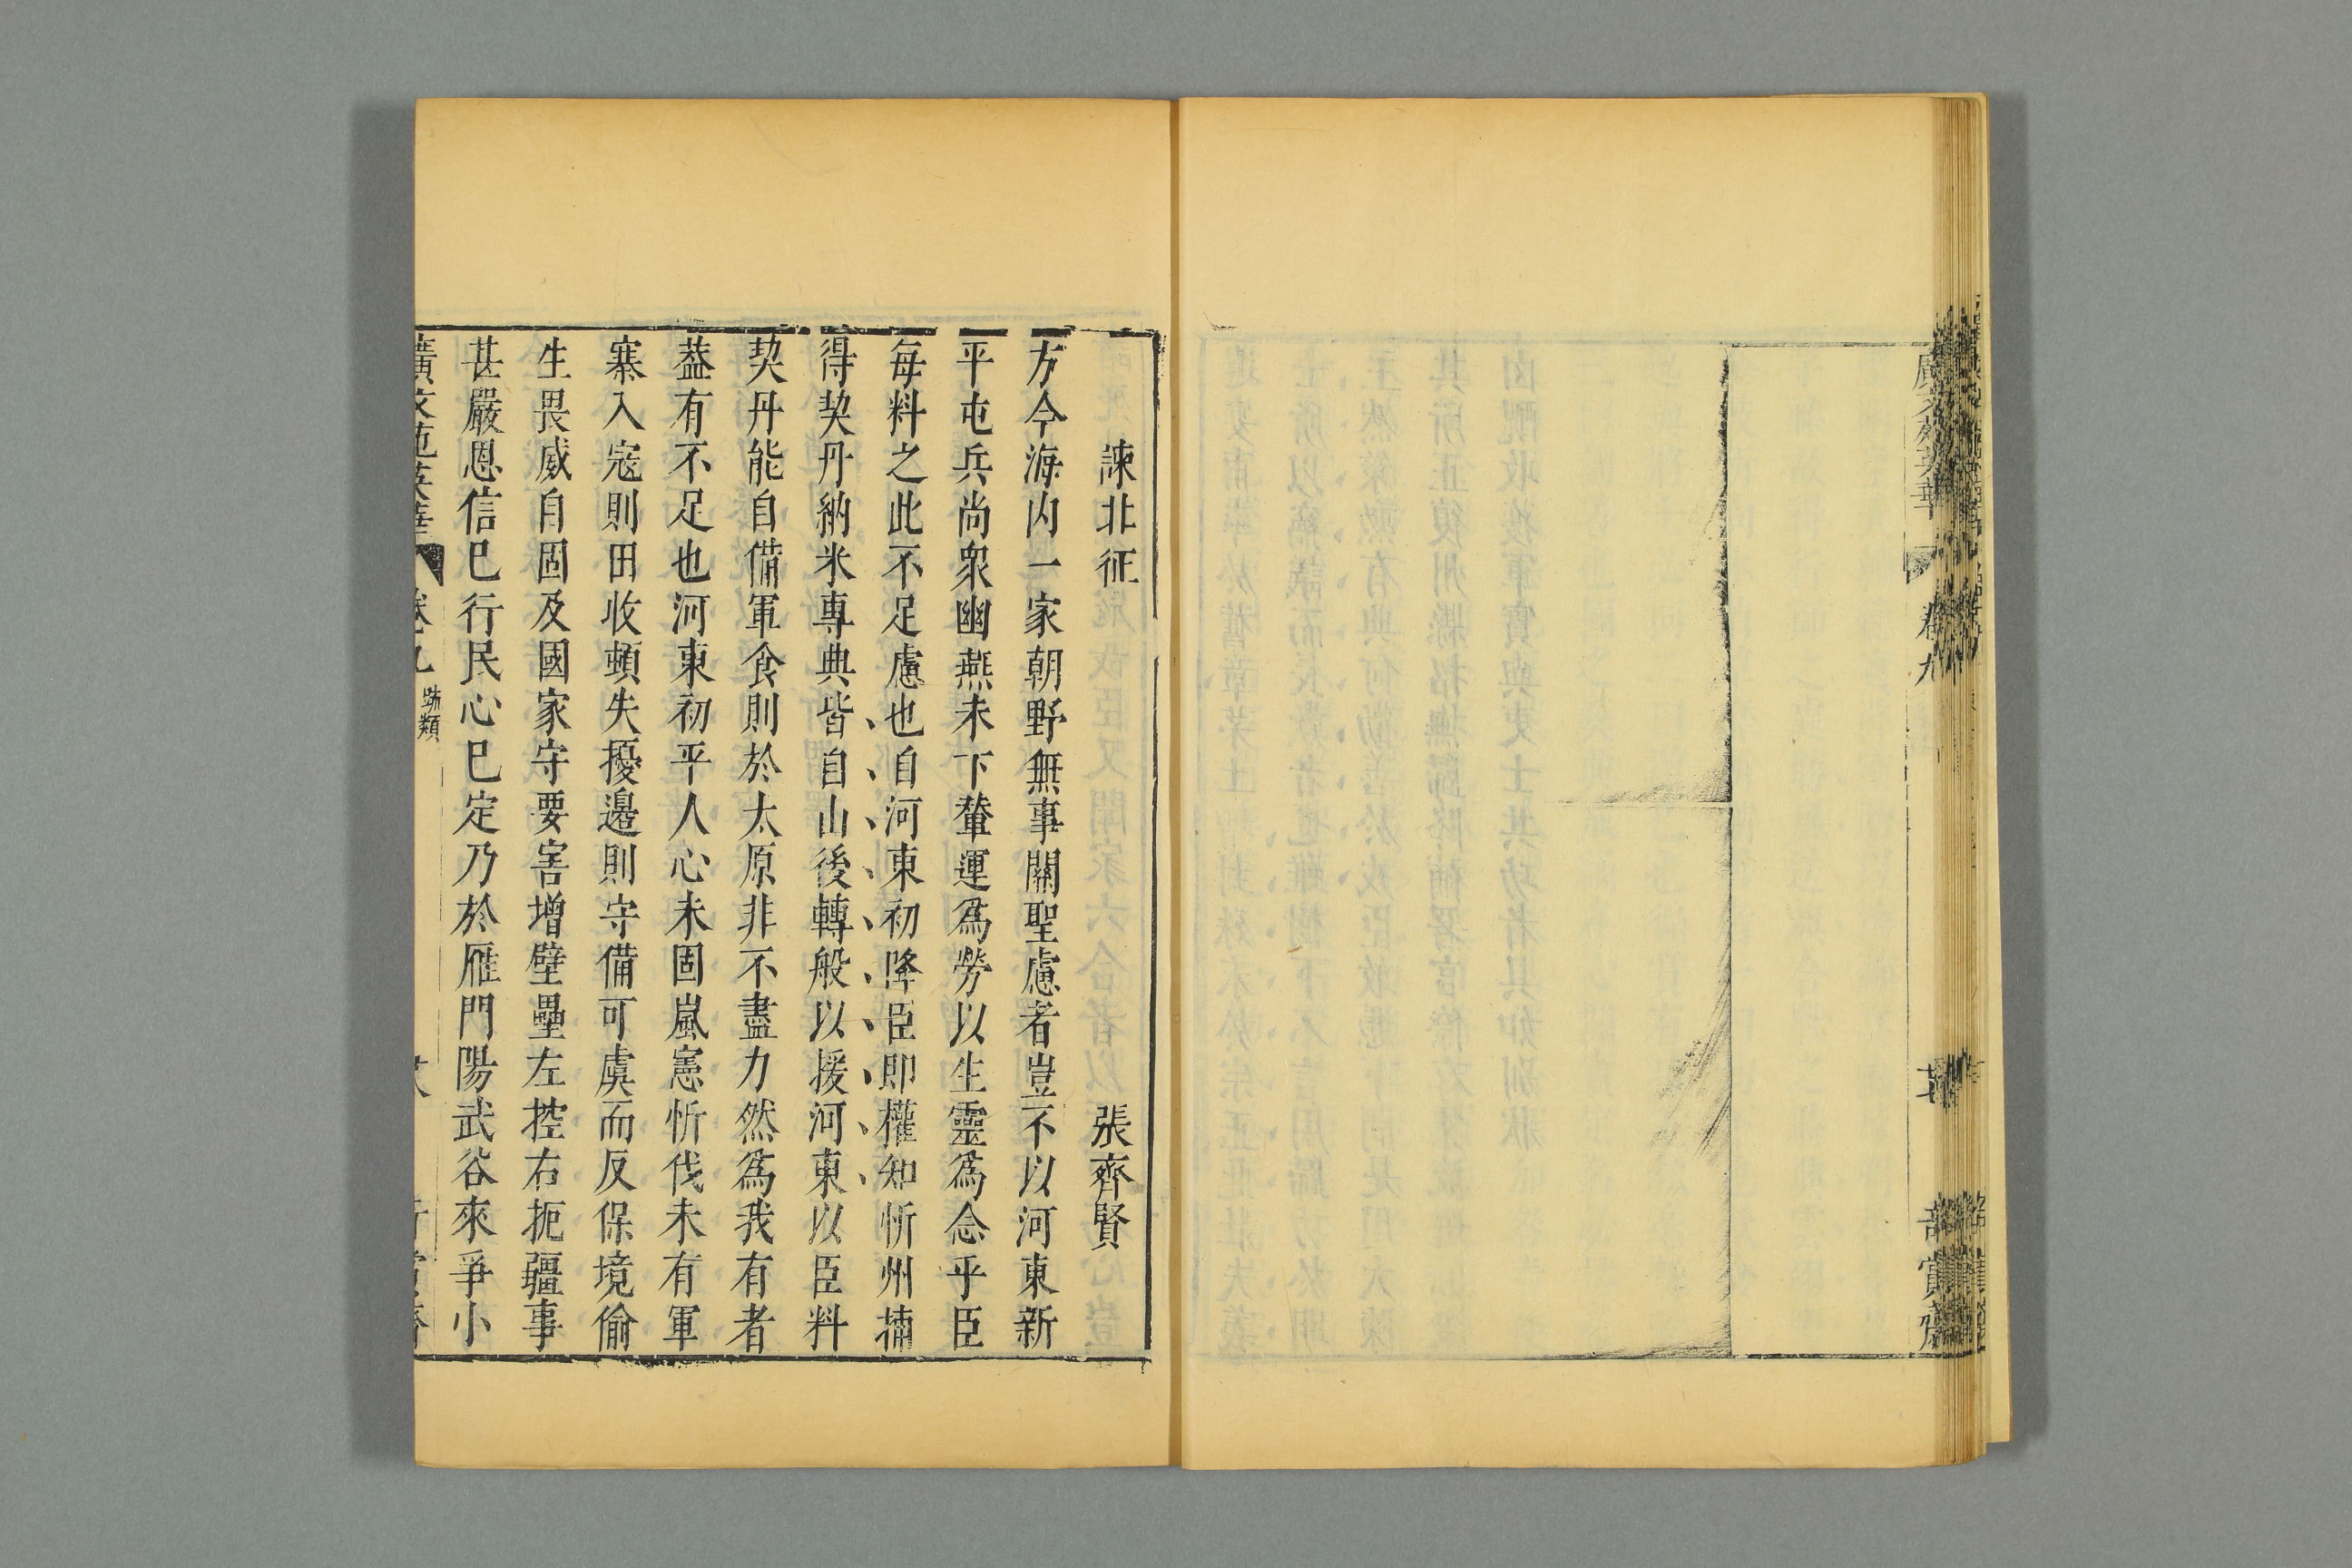 廣文苑英華
卷九
諫北征 張齊賢
方今海內一家朝野無事關聖慮者豈不以河東新
平屯兵尚衆幽燕未下輦運爲勞以生靈爲念乎臣
每料之此不足慮也自河東初降臣即權知忻州捕
得契丹納米專典皆自山後轉般以援河東以臣料
契丹能自備軍食則於太原非不盡力然爲我有者
葢有不足也河東初平人心未固嵐憲忻伐未有軍
寨入寇則田收頓失擾邊則守備可虞而反保境偷
生畏威自固及國家守要害增壁壘左控右扼疆事
甚嚴恩信已行民心已定乃於雁門陽武谷來爭小
廣文苑英華 卷九 疏類